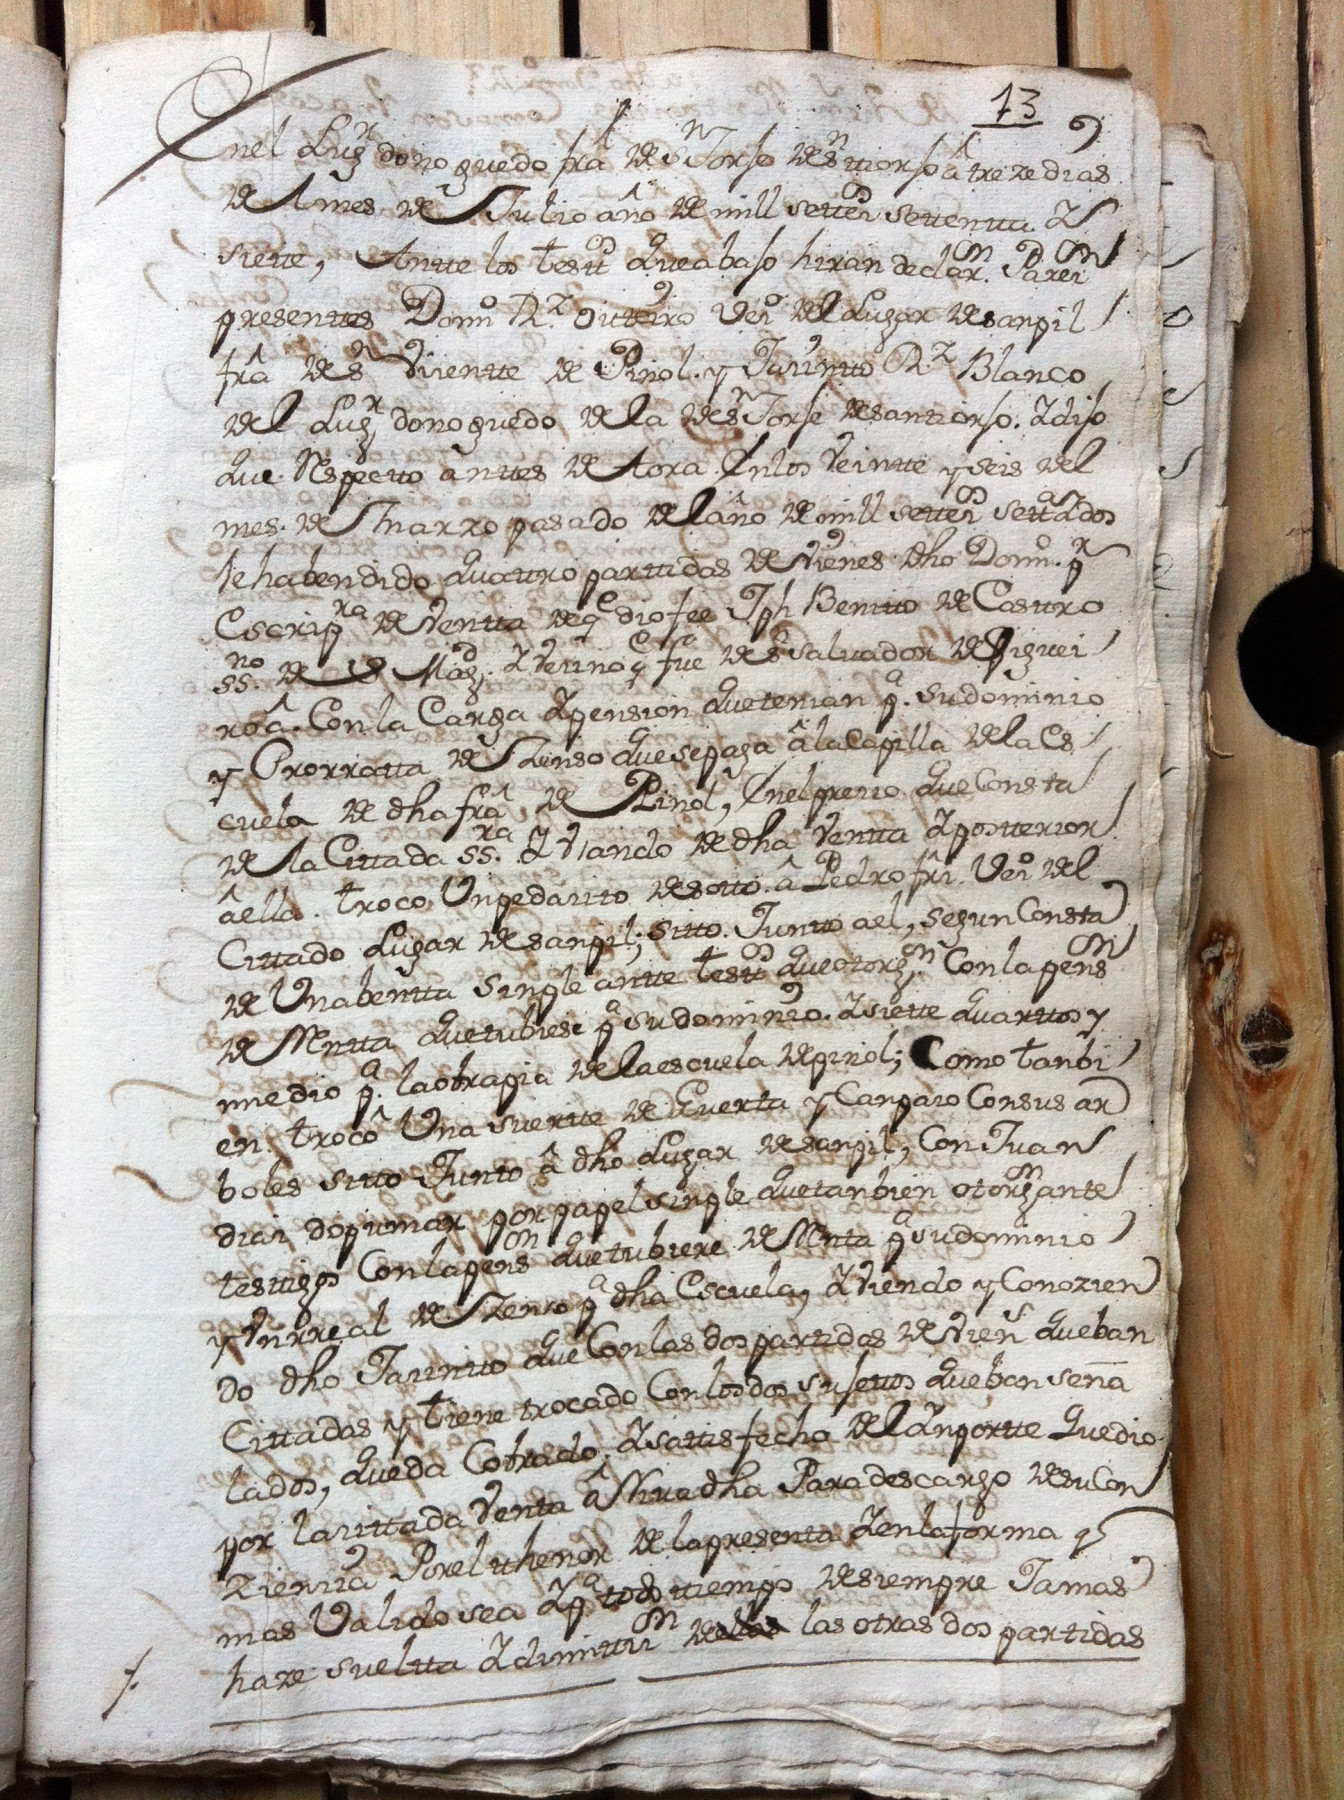 13
Enel Lugr donoguedo fra de Sn Jorse de Santiorso â treze dias
de Ames de Julio año de mill setteos settentta y
siette, Antte los testos que abaso hiran declarn. Pareon
presenttes Domo Rz. outeiro Veo del Lugar de sanpil
frâ de Sn Vizentte de Pinol. y Jazintto Rz Blanco
del Lugr donoguedo de la de Sn Jorse de santiorso. y diso
que Respectto anttes de Aora Enlos Veintte y seis del
mes. de Marzo pasado del año de mill setteos settados
le habendido quattro parttidas de Vienes dho Domo. pr
Escripra de Ventta de qe dio fee Jph Benitto de Casttro
ssno. de S Magd. y Vezino qe fue de Sn Salvador de Figuei
roâ. Con la Carga y pension que tenian pa. su dominio
y Prorratta de Zenso que se paga â la Capilla de la Es
cuela de dha frâ de Pinol, Enel prezio que Consta
de la Cittada ssra. y Usando de dha Ventta y postterior
âella. troco Un pedazito de sotto. â Pedro frz. Veo del
Cittado Lugar de sanpil; sitto. Juntto ael, segun Consta
de Una bentta single antte testos que otorgn. Con la pensn
de Rentta que tubiese pa su dominio. y siette quarttos y
medio pa. la obra pia de la escuela de pinol; Como tanbi
en trocô Una suertte de huerta y Canpazo Con sus ar
boles sitto Juntto â dho Lugar de sanpil, Con Juan
diaz dopumar por papel single que tanbien otorgn ante
testtigos Con la pensn que tubiere de Renta pa su dominio
y Un rreal de Zenso pa dha Escuela, y Viendo y Conozien
do dho Jazintto que Con las dos partidas de Viens queban
Cittadas y tiene trocado Con los dos susettos queban seña
lados, queda Cobrado, y sattisfecho del Ynportte que dio
por la zittada Venta â Riva dha Para descargo de su Con
zienzia Por el thenor de la presenta y en la forma q
mas Valido sea y pa todo ttiempo de siempre Jamas
haze suelta y dimittizn de las otras dos partidas